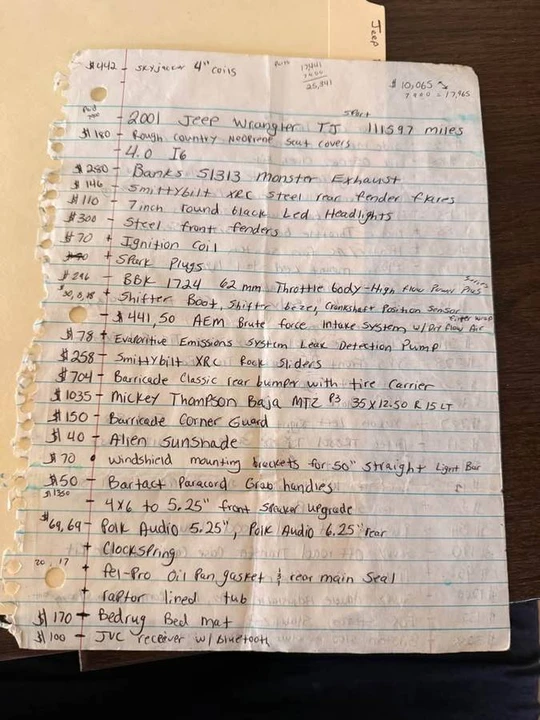 Jeep
$442 - skyjacker 4" coils
17,941
7900
25,841
$10,065
7900 = 17,965
Paid
- 2001 Jeep Wrangler TJ Sport 111597 miles
$180 - Rough country Neoprene Seat covers
- 4.0 I6
$280 - Banks 51313 monster Exhaust
$146 - Smittybilt XRC Steel rear fender flares
$110 - 7inch round black Led Headlights
$300 - Steel front fenders
$70 + Ignition Coil
+ Spark Plugs
$296 - BBK 1724 62mm Throttle body - High Flow Power Plus Series
+ Shifter Boot, Shifter beze, Crankshaft Position Sensor
- $441,50 AEM Brute force Intake System w/Dry Flow Air Filter wrap
$78 + Evaporitive Emissions System Leak Detection Pump
$258 - Smittybilt XRC Rock Sliders
$704 - Barricade Classic rear bumper with tire Carrier
$1035 - Mickey Thompson Baja MTZ P3 35 x 12.50 R 15 LT
$150 - Barricade Corner Guard
$40 - Alien Sunshade
$70 • Windshield mounting brackets for 50" Straight Light Bar
$50 - Bartact Paracord Grab handles
- 4x6 to 5.25" front speaker upgrade
$69,69 - Polk Audio 5.25", Polk Audio 6.25" rear
+ Clockspring
20, 17 + Fel-Pro Oil Pan gasket & rear main Seal
+ raptor lined tub
$170 - Bedrug Bed mat
$100 - JVC receiver w/bluetooth